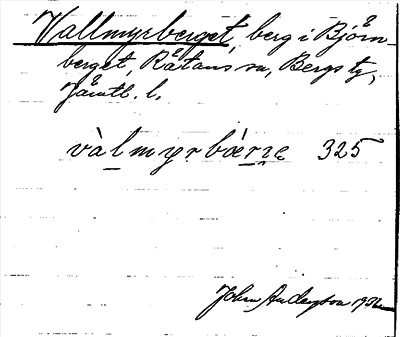 Vallmyrberget, berg i Björn-
berget, Rätans sn, Bergs tg,
Jämtl. l.
vàlmyrbærɪe 325
John Anderson